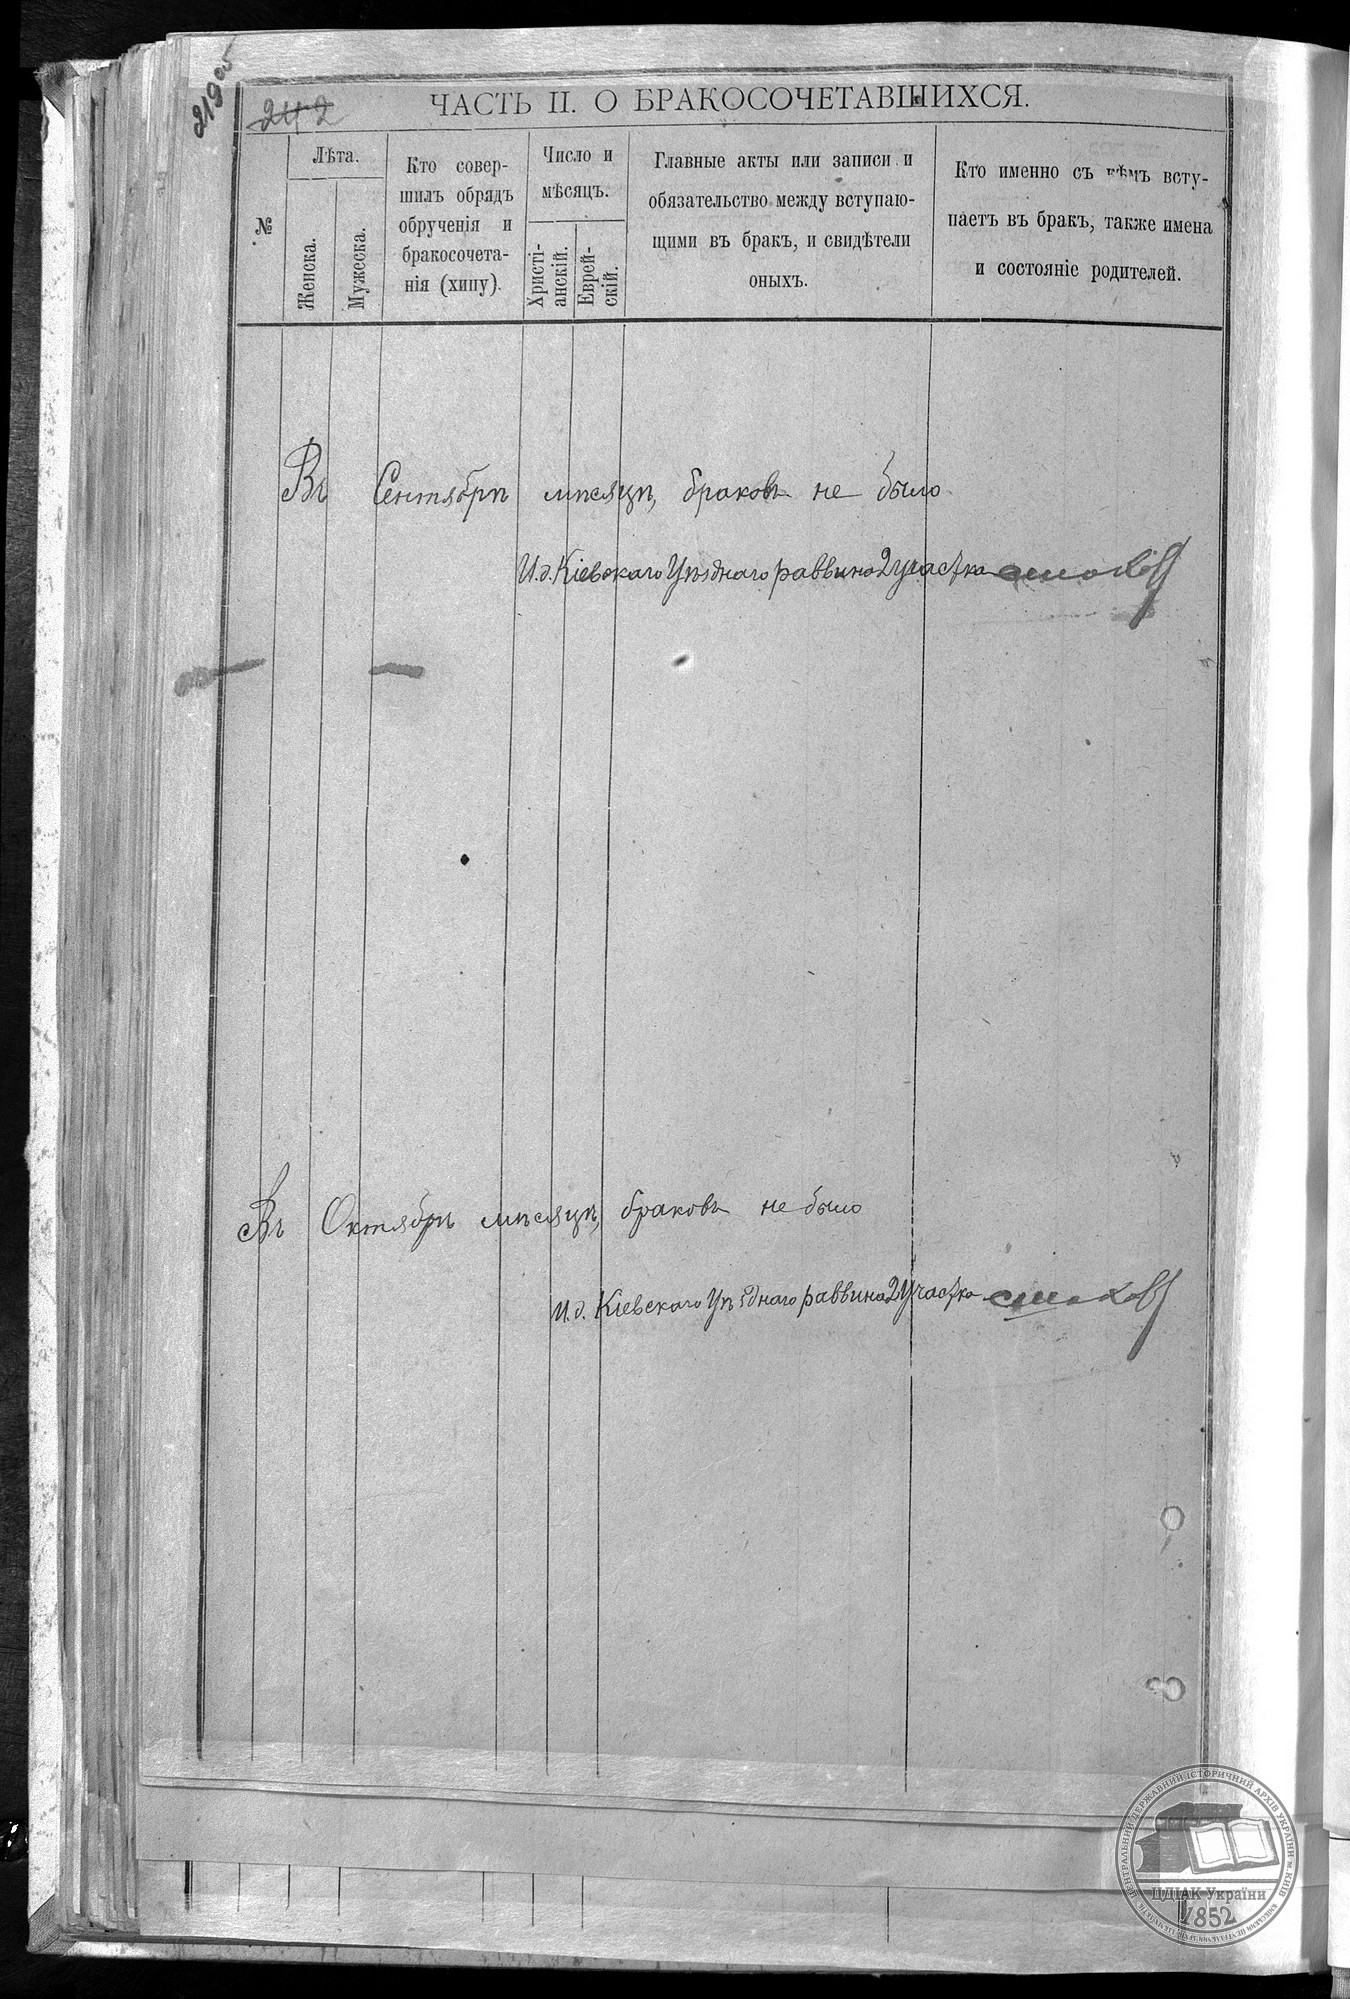 219 об
242
ЧАСТЬ II. О БРАКОСОЧЕТАВШИХСЯ.
№
Лѣта.
Женска.
Мужеска.
Кто совер-
шилъ обрядъ
обрученія и
бракосочета-
нія (хипу).
Число и
мѣсяцъ.
Христі-
анскій.
Еврей-
скій.
Главные акты или записи и
обязательство между вступаю-
щими въ бракъ, и свидѣтели
оныхъ.
Кто именно съ кѣмъ всту-
паетъ въ бракъ, также имена
и состояніе родителей.
Въ Сентябрѣ мѣсяцѣ, браковъ не было
И.д. Кіевскаго Уѣзднаго раввина 2 участка
Въ Октябрѣ мѣсяцѣ, браковъ не было
И.д. Кіевскаго Уѣзднаго раввина 2 Участка
ЦЕНТРАЛЬНИЙ ДЕРЖАВНИЙ ІСТОРИЧНИЙ АРХІВ УКРАЇНИ м. КИЇВ
ЦДІАК України
1852